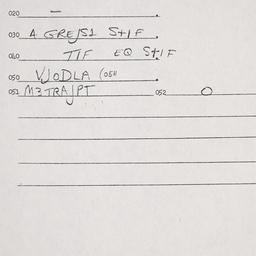 020 —
030 A GREJS1 S+/F
040 TTF EQ S+/F
050 VJODLA (05H
051 M3TRA/PT 052 O